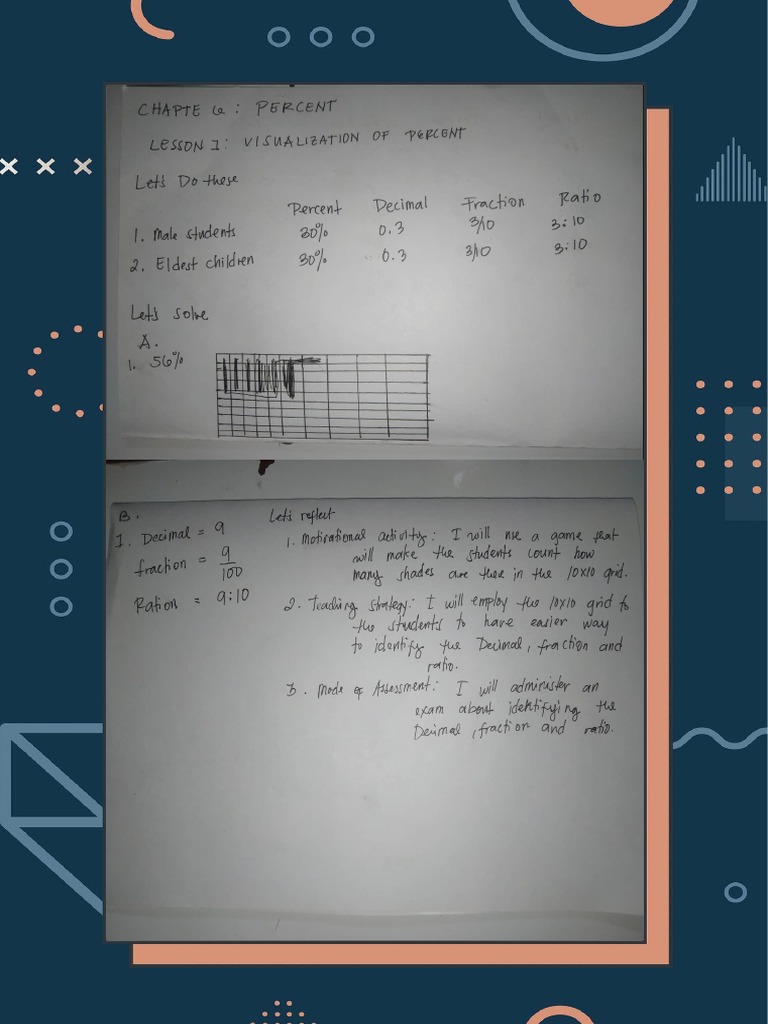 CHAPTE 6 : PERCENT
LESSON 1: VISUALIZATION OF PERCENT
Let's Do these
Percent Decimal Fraction Ratio
1. Male students 30% 0.3 3/10 3:10
2. Eldest children 30% 0.3 3/10 3:10
Let's solve
A.
1. 56%
B.
1. Decimal = 9
fraction = 9/100
Ration = 9:10
Let's reflect
1. Motivational activity: I will use a game that
will make the students count how
many shades are there in the 10x10 grid.
2. Teaching strategy: I will employ the 10x10 grid to
the students to have easier way
to identify the Decimal, fraction and
ratio.
3. Mode of Assessment: I will administer an
exam about identifying the
Decimal, fraction and ratio.